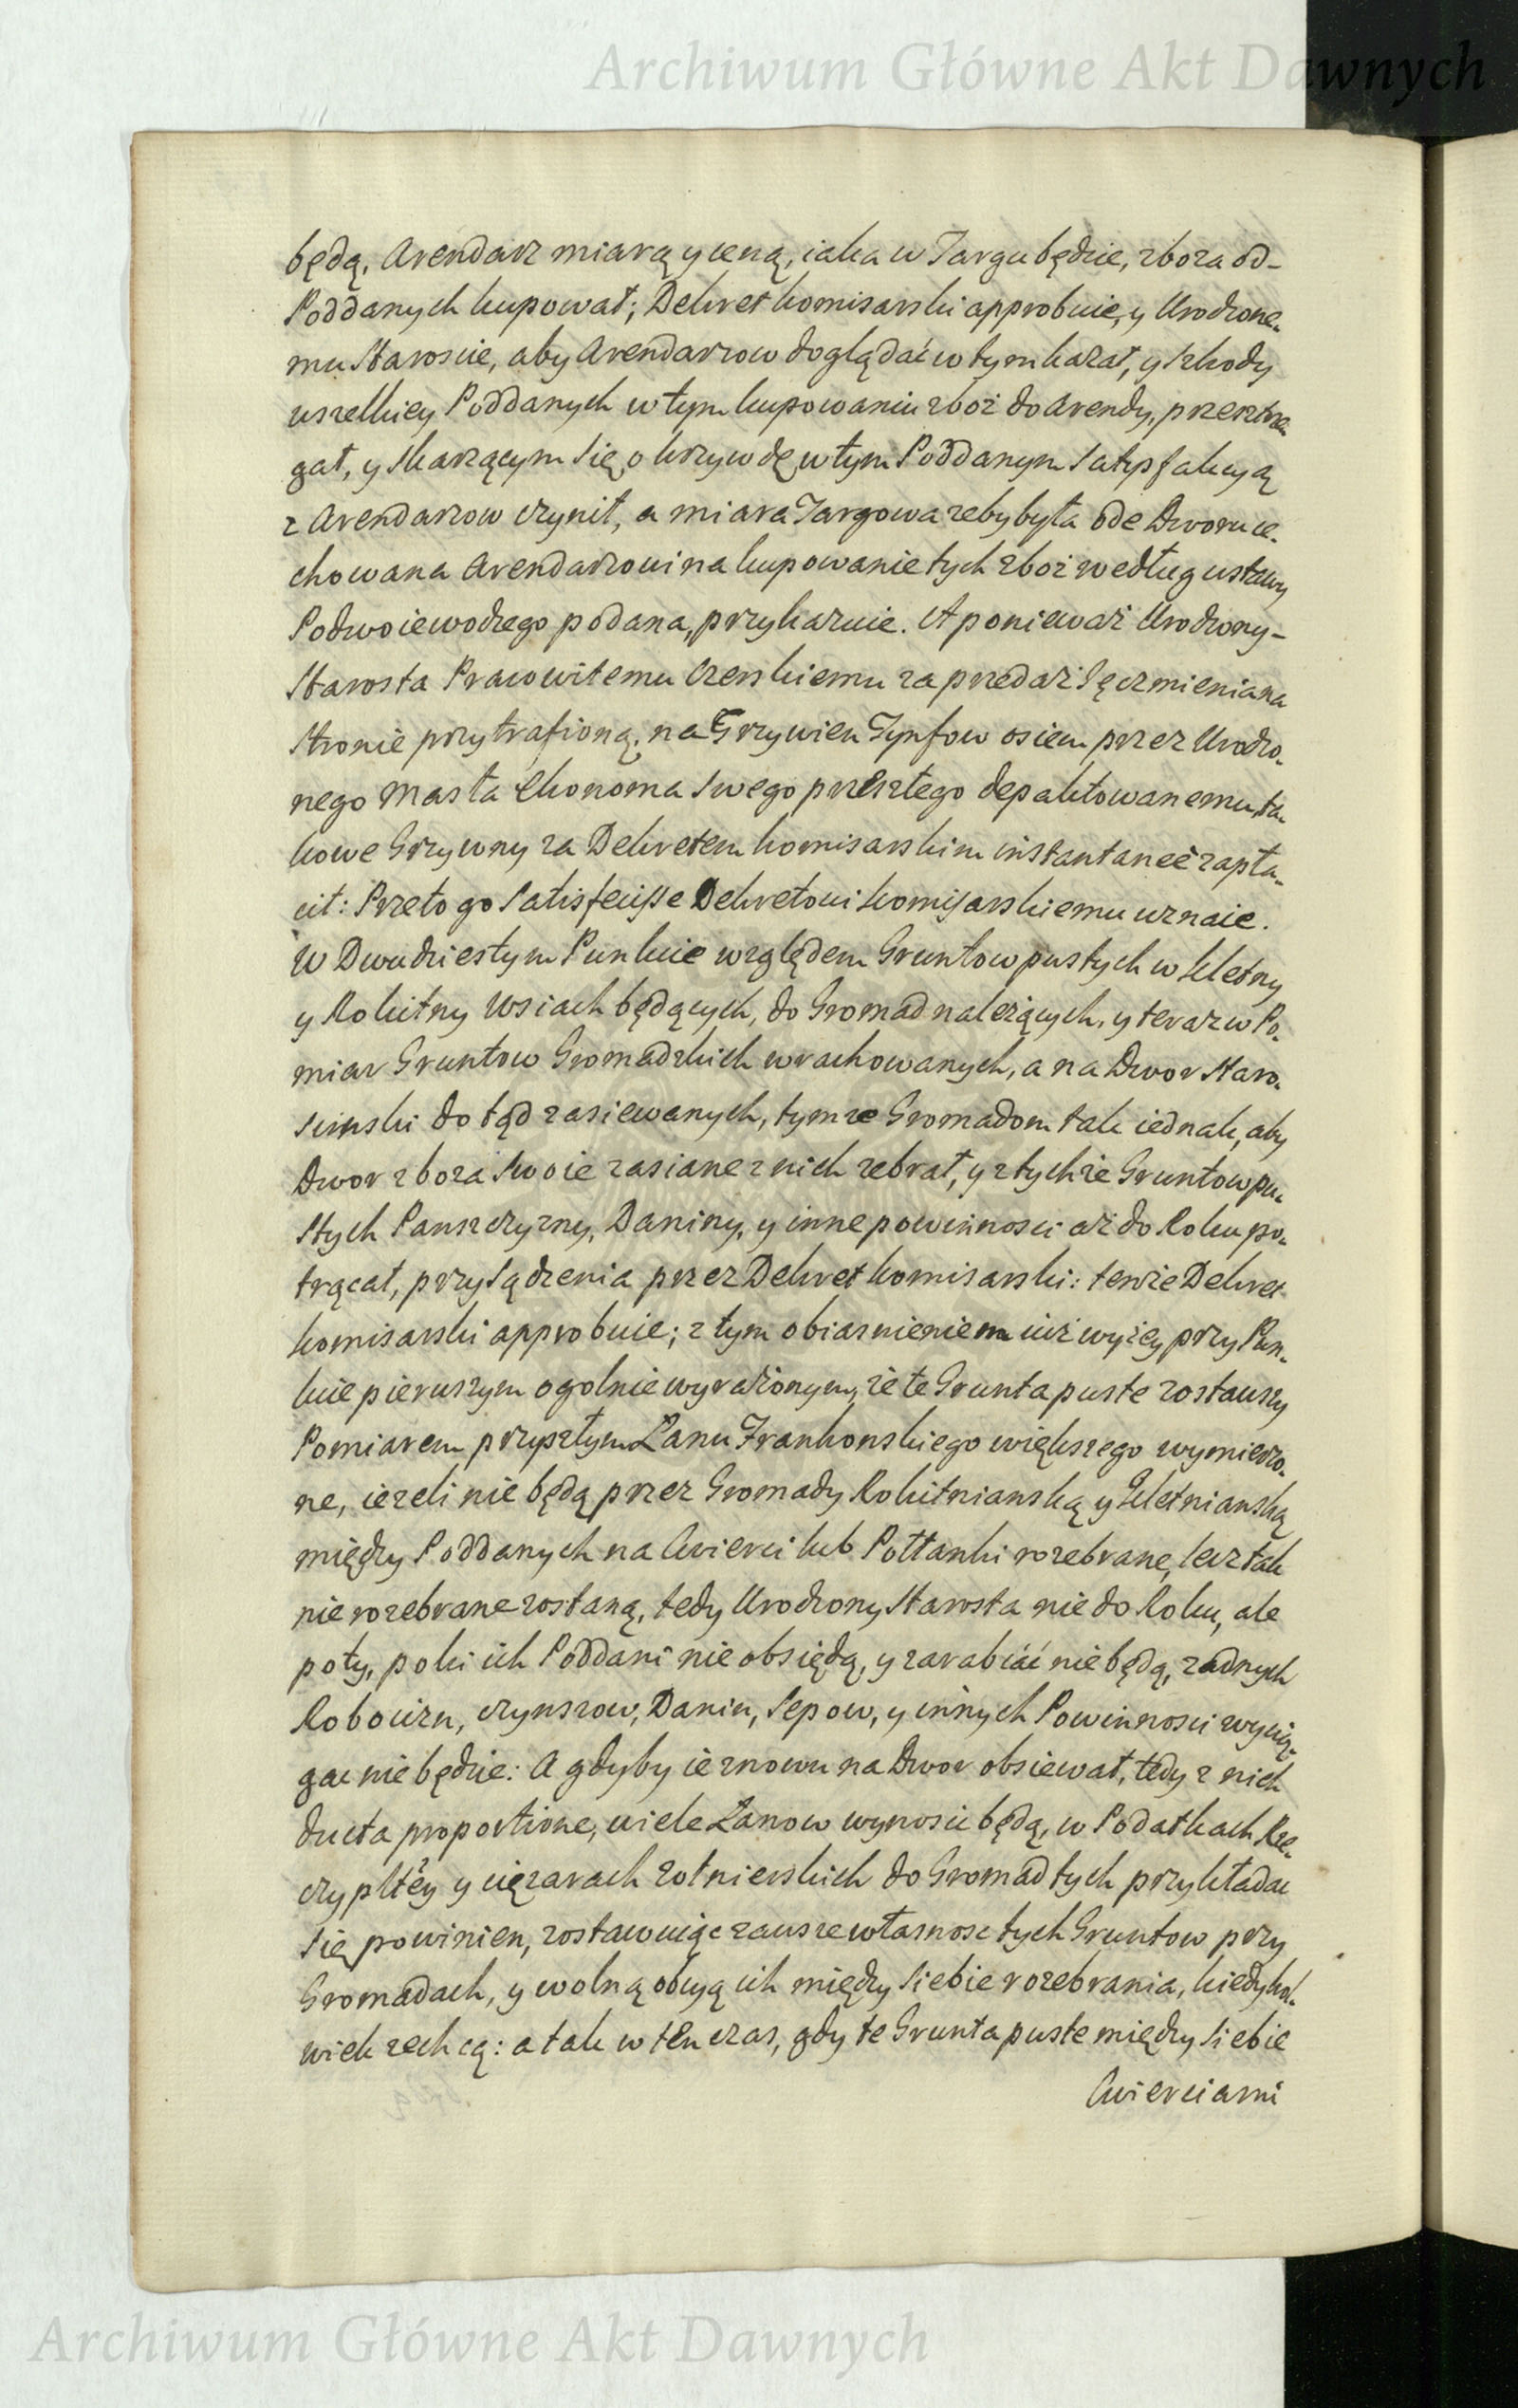 Archiwum Główne Akt Dawnych
będą, Arendarz miarą y ceną, iaka w Targu będzie, zboza od-
Poddanych kupował; Dekret komisarski approbuie, y Urodzone-
mu Staroscie, aby Arendarzow doglądać w tym kazał, y szkody
wszelkiey Poddanych w tym kupowaniu zboż do Arendy, przestrze-
gał, y skarzącym się o krzywdę w tym Poddanym satysfakcyą
z Arendarzow czynił, a miara Targowa zeby była ode Dworu ce-
chowana Arendarzowi na kupowanie tych zboż według ustawy
Podwoiewodzego podana, przykazuie. A ponieważ Urodzony-
Starosta Pracowitemu Czerskiemu za przedaż Jęczmieniana
stronie przytrafioną, na Grzywien Tynfow osiem przez Urodzo-
nego Masła Ekonoma swego przeszłego depaktowanemu, ta-
kowe Grzywny za Dekretem komisarskim instantaneè zapła-
cił: Przeto go satisfecisse Dekretowi komisarskiemu uznaie.
W Dwudziestym Punkcie względem Gruntow pustych w Kletny
y Rokitny Wsiach będących, do Gromad nalezących, y teraz w Po-
miar Gruntow Gromadzkich wrachowanych, a na Dwor Staro-
scinski do tąd zasiewanych, tym ze Gromadom tak iednak, aby
Dwor zboza swoie zasiane z nich zebrał, y z tychże Gruntow pu-
stych Panszczyzny, Daniny, y inne powinnosci aż do Roku po-
trącał, przysądzenia przez Dekret komisarski: tenże Dekret
komisarski approbuie; z tym obiasnieniem iuż wyżey przy Pun-
kcie pierwszym ogolnie wyrażonym, że te Grunta puste zostawszy
Pomiarem przyszłym Łanu Frankonskiego większego wymierzo-
ne, iezeli nie będą przez Gromady Rokitnianską y Kletnianską
między Poddanych na Cwierci lub Połłanki rozebrane, lecz tak
nierozebrane zostaną, tedy Urodzony Starosta nie do Roku, ale
poty, poki ich Poddani nie obsiędą, y zarabiać nie będą, zadnych
Robocizn, czynszow, Danin, Sepow, y innych Powinnosci wycią-
gac nie będzie: A gdyby ie znowu na Dwor obsiewał, tedy z nich
ducta proportione, wiele Łanow wynosic będą, w Podatkach Rze-
czyplłey y cięzarach zołnierskich do Gromad tych przykładac
się powinien, zostawuiąc zawsze własnosc tych Gruntow przy
Gromadach, y wolną obcyą ich między siebie rozebrania, kiedykol-
wiek zechcą: a tak w ten czas, gdy te Grunta puste między siebie
Cwierciami
Archiwum Główne Akt Dawnych